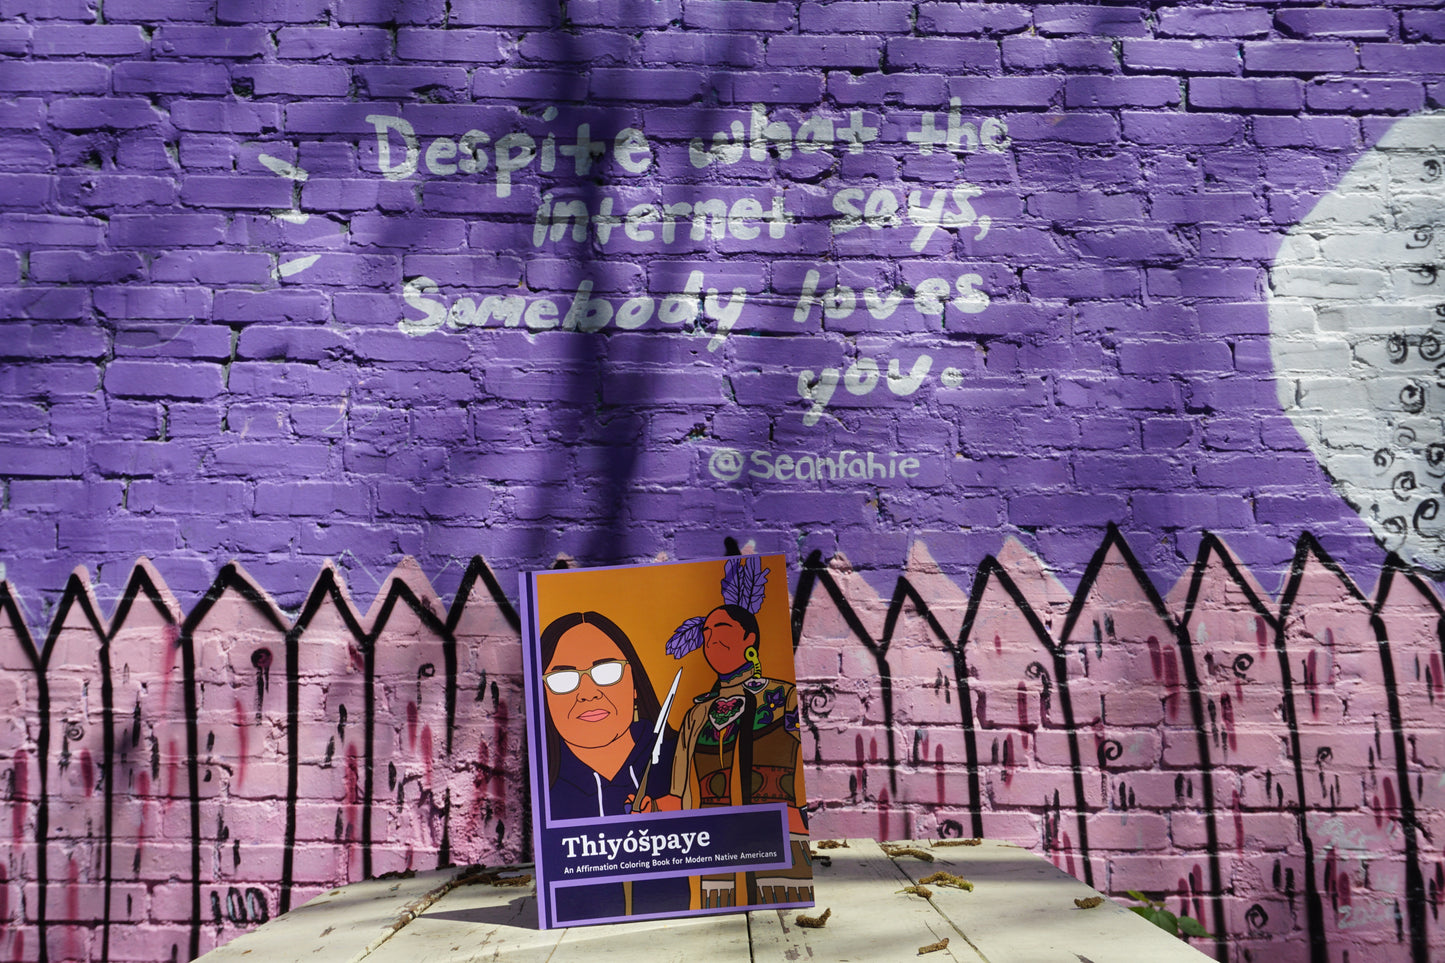 Despite what the
internet says,
Somebody loves
you.
@Seanfahie
Thiyóšpaye
An Affirmation Coloring Book for Modern Native Americans
100